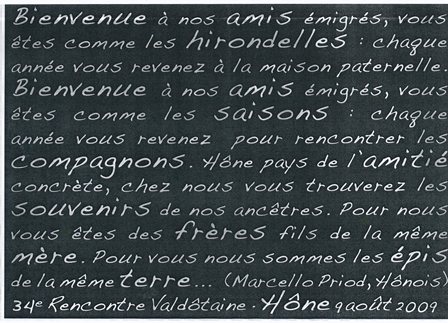 Bienvenue à nos amis émigrés, vous
êtes comme les hirondelles : chaque
année vous revenez à la maison paternelle.
Bienvenue à nos amis émigrés, vous
êtes comme les saisons : chaque
année vous revenez pour rencontrer les
compagnons. Hône pays de l'amitié
concrète, chez nous vous trouverez les
souvenirs de nos ancêtres. Pour nous
vous êtes des frères fils de la même
mère. Pour vous nous sommes les épis
de la même terre... (Marcello Priod, Hônois)
34e Rencontre Valdôtaine - Hône 9 août 2009